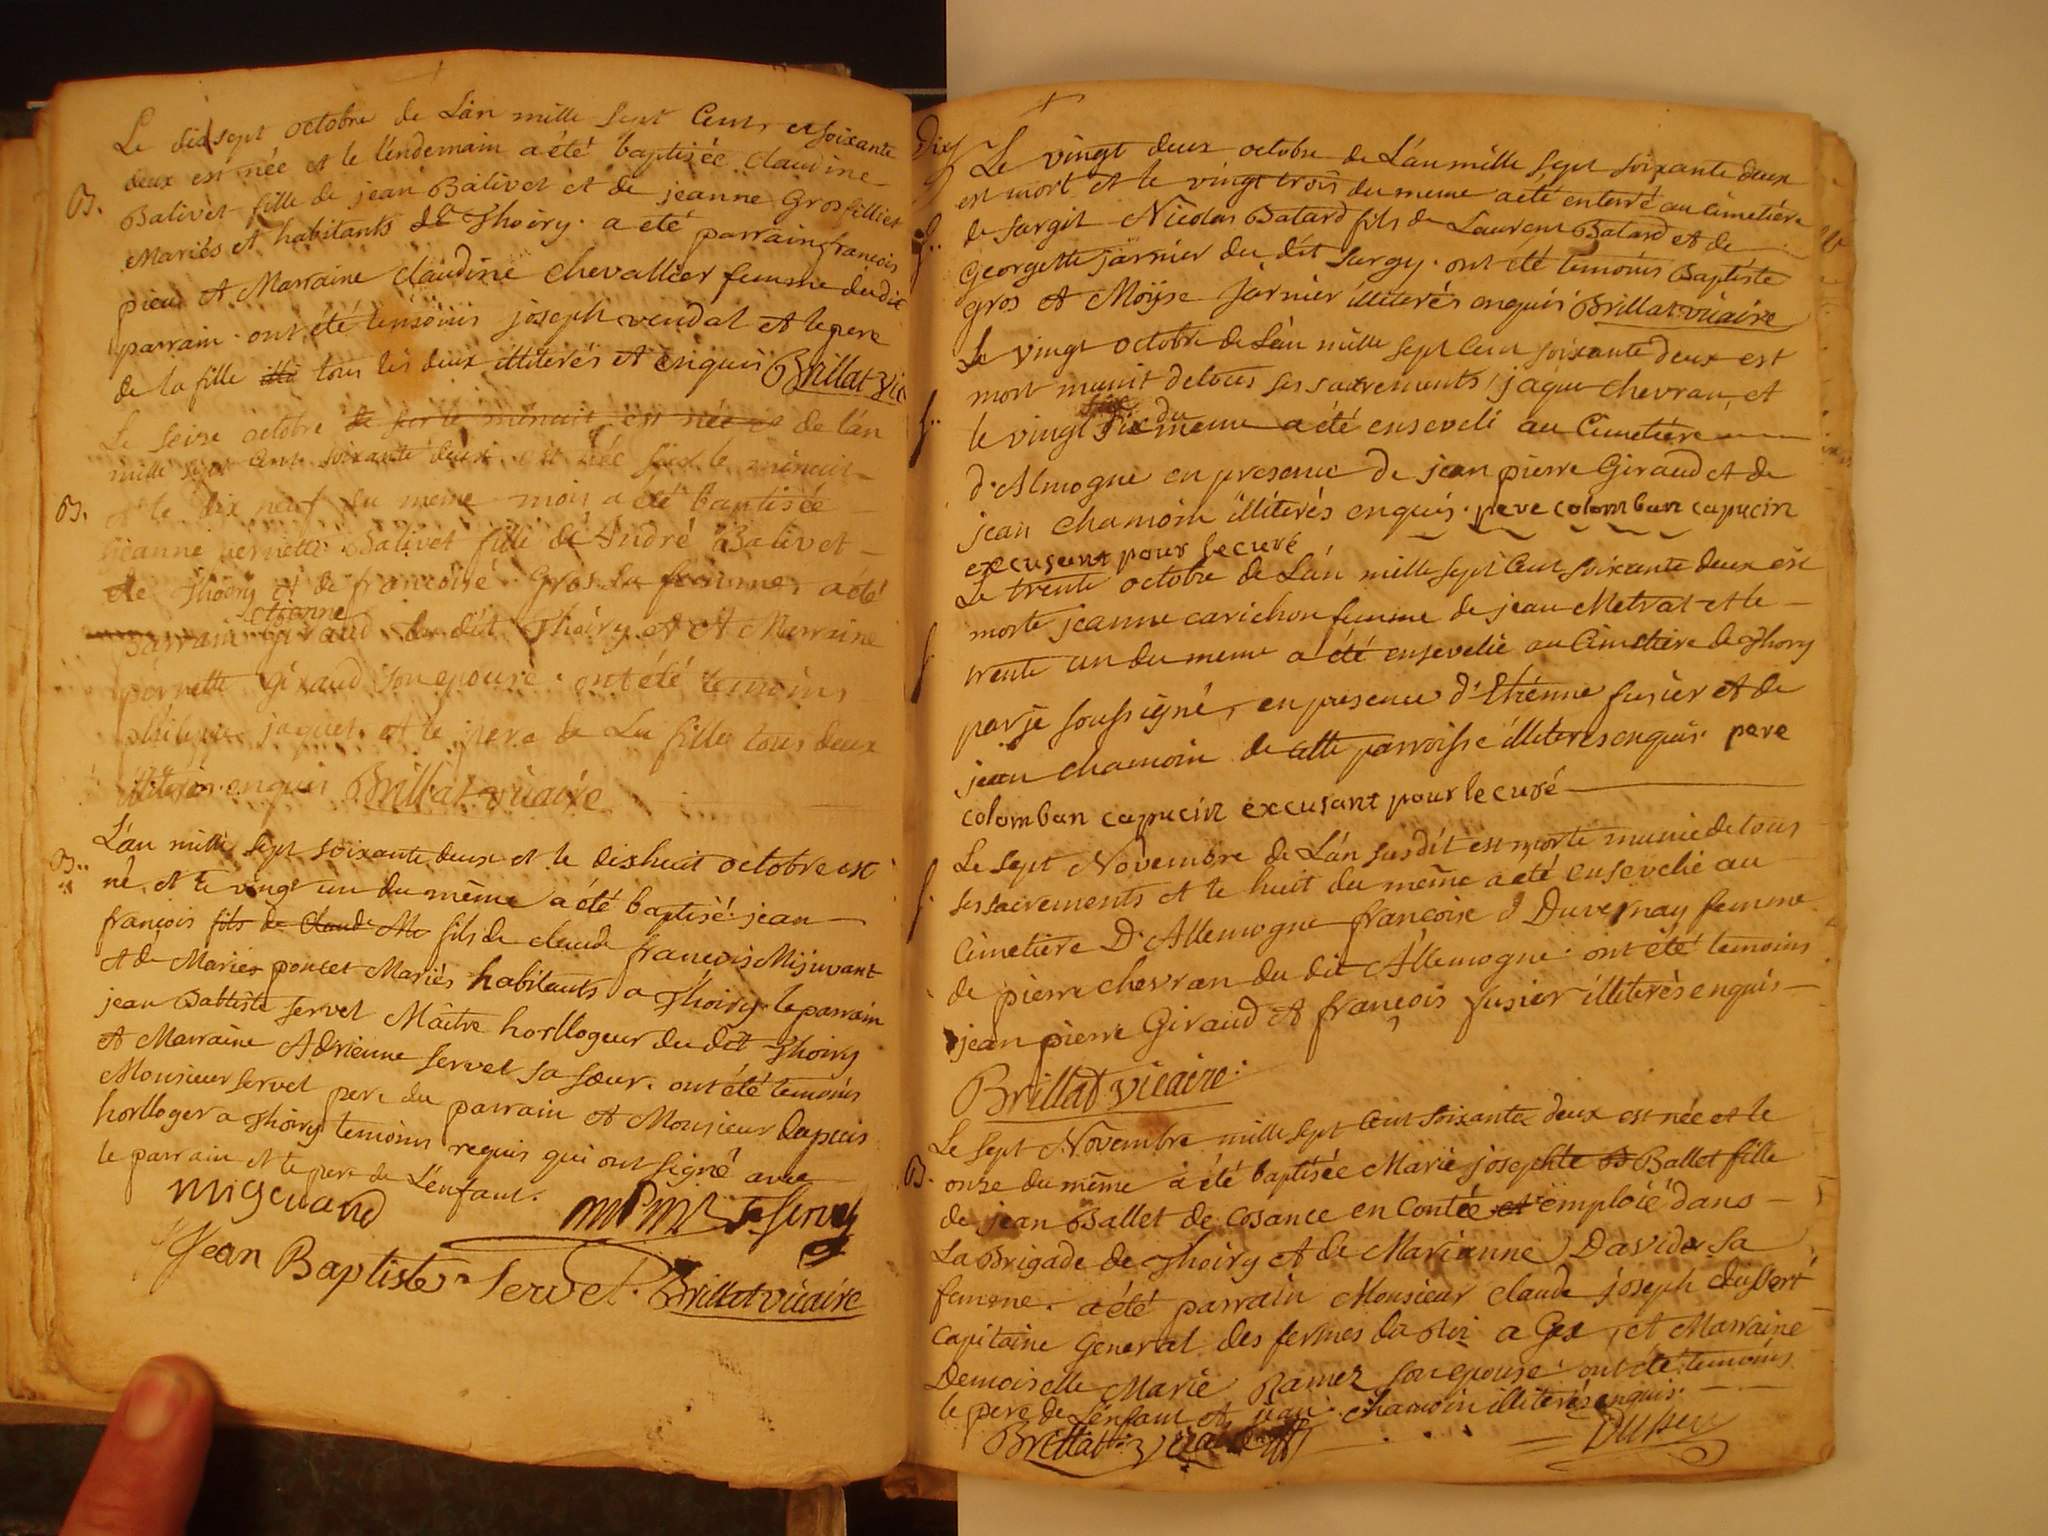 Le dixsept octobre de L'an mille sept Cents et soixante
deux est née et le lendemain a été baptisée claudine
B. Balivet fille de jean Balivet et de jeanne Grosfilliet
Mariés et habitants de Thoiry. a été parrain francois
pieur et Marraine claudine chevallier femme du dit
parrain. ont été temoins joseph vendal et le pere
de la fille tous les deux illiterés et enquis Brillat vic
Le seize octobre de sur le minuit est née de l'an
mille sept cent soixante deux est née sur le minuit
B. et le dix neuf du meme mois a été baptisée
jeanne pernette Balivet fille de André Balivet
de Thoiry et de francoise Gros sa femme, a été
etienne
parrain Giraud du dit Thoiry et et Marraine
pernette giraud son epouse. ont été temoins
philippe jaquet et le pere de La fille tous deux
illiterés enquis Brillat vicaire
L'an mille sept soixante deux et le dixhuit octobre est
B. né, et le vingt un du même a été baptisé jean
françois fils de Claude Me fils de claude francois Mijuvant
et de Marie poncet Mariés habitants a Thoiry. le parrain
jean Battiste servet Maître horllogeur du dit Thoiry
et Marraine Adrienne servet sa sœur. ont été temoins
Monsieur servet pere du parrain et Monsieur Dapuis
horlloger a Thoiry temoins requis qui ont signé avec
le parrain et le pere de L'enfant.
servet
Jean Baptiste servet. Brillat vicaire
Dix
Le vingt deux octobre de L'an mille sept soixante deux
est mort et le vingt trois du meme a été enterré au cimetière
de sergit Nicolas Batard fils de Laurent Batard et de
Georgette jarnier du dit sergy. ont été temoins Baptiste
gros et Moÿse jarnier illiterés enquis Brillat vicaire
Le vingt octobre de L'an mille sept Cent soixante deux est
mort munit de tous ses sacrements jaque chevran, et
six du
le vingt meme a été enseveli au Cimetière
d'Almogne en presence de jean pierre Giraud et de
jean chamoin illiterés enquis. pere colomban capucin
excusant pour le curé
Le trente octobre de L'an mille sept Cent soixante deux est
morte jeanne carichon femme de jean Metrat et le
trente un du meme a été ensevelie au Cimetiere de Thory
par je soussigné, en presence d'Etiénne fusier et de
jean chamoin de cette parroisse illiterés enquis. pere
colomban capucin excusant pour le curé
Le sept Novembre de L'an susdit est morte munie de tous
ses sacrements et le huit du même a été ensevelie au
Cimetiere D'Allemogne françoise Duvernay femme
de pierre chevran du dit Allemogne. ont été temoins
jean pierre Giraud et françois fusier illiterés enquis
Brillat vicaire.
Le sept Novembre mille sept Cent soixante deux est née et le
B. onze du même a été baptisée Marie josephte Ballet fille
de jean Ballet de cosance en Contée et emploié dans
La Brigade de Thoiry et de Marianne David sa
femme. a été parrain Monsieur claude joseph
capitaine General des fermes du Roi a Gex, et Marraine
Demoiselle Marie Ramez son epouse. ont été temoins
le pere de L'enfant et jean chamoin illiterés enquis.
Brillat vicaire